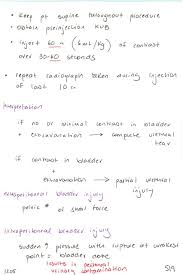 • keep pt supine throughout procedure
• obtain preinjection KUB
• inject 60 ml (6 ml/kg) of contrast
over 30-60 seconds
• repeat radiograph taken during injection
of last 10 ml
Interpretation
if no or minimal contrast in bladder
+ extravasation → complete urethral
tear
if contrast in bladder
+
extravasation → partial urethral
injury
extraperitoneal bladder injury
pelvic # or shear force
intraperitoneal bladder injury
sudden ↑ pressure with rupture at weakest
point = bladder dome
results in peritoneal
urinary contamination